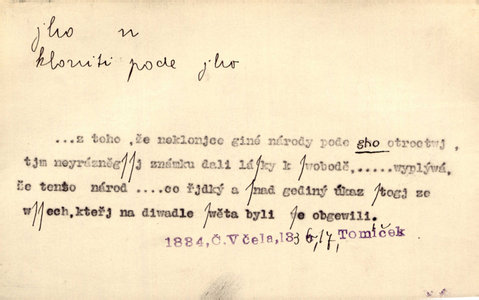 jho n
kloniti pode jho
...z toho, že neklonjce giné národy pode gho otroctwj,
tjm neyrázněgſſj známku dali láſky k ſwobodě,.....wyplýwá,
že tento národ ....co řjdký a ſnad gediný úkaz ſtogj ze
wſſech,kteřj na diwadle ſwěta byli ſe obgewili.
1884,Č.Včela,1836,17,Tomíček